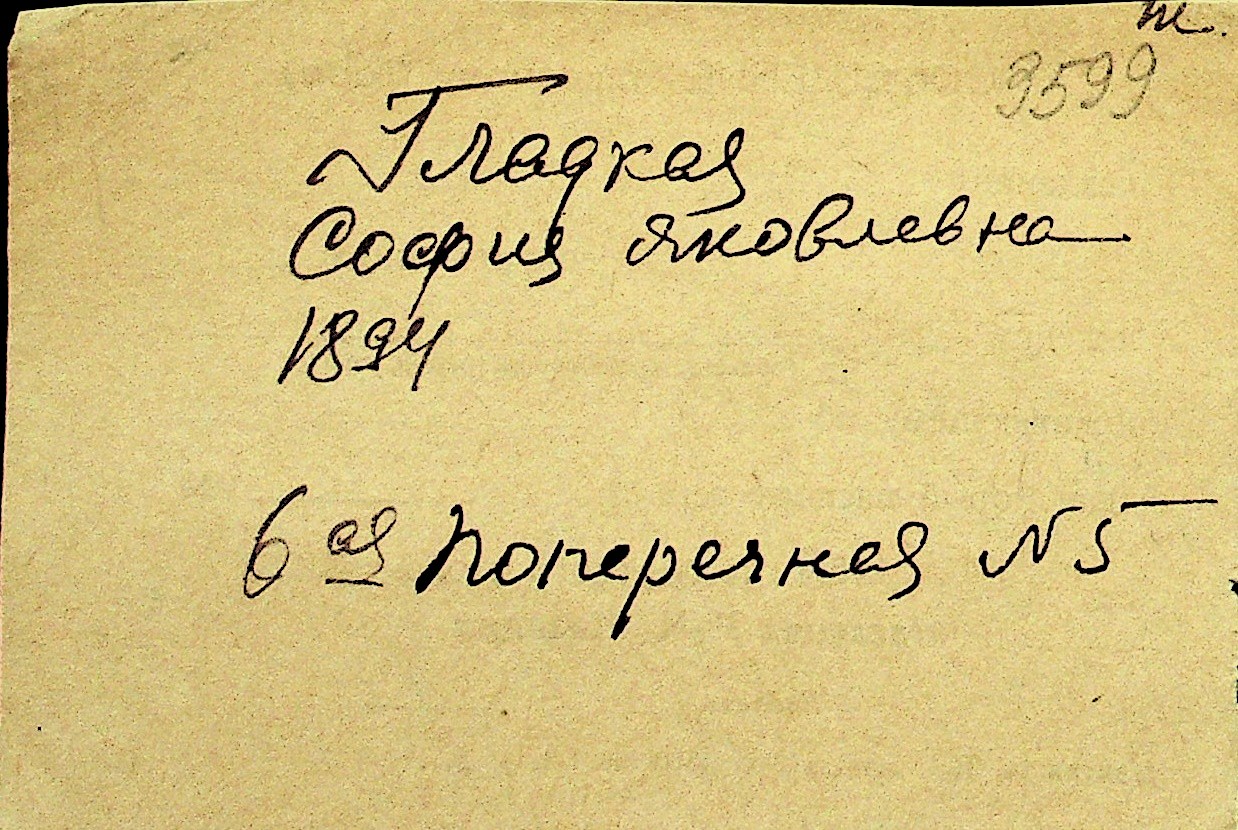 3599
Гладкая
София Яковлевна
1894
6 ая Поперечная N 5